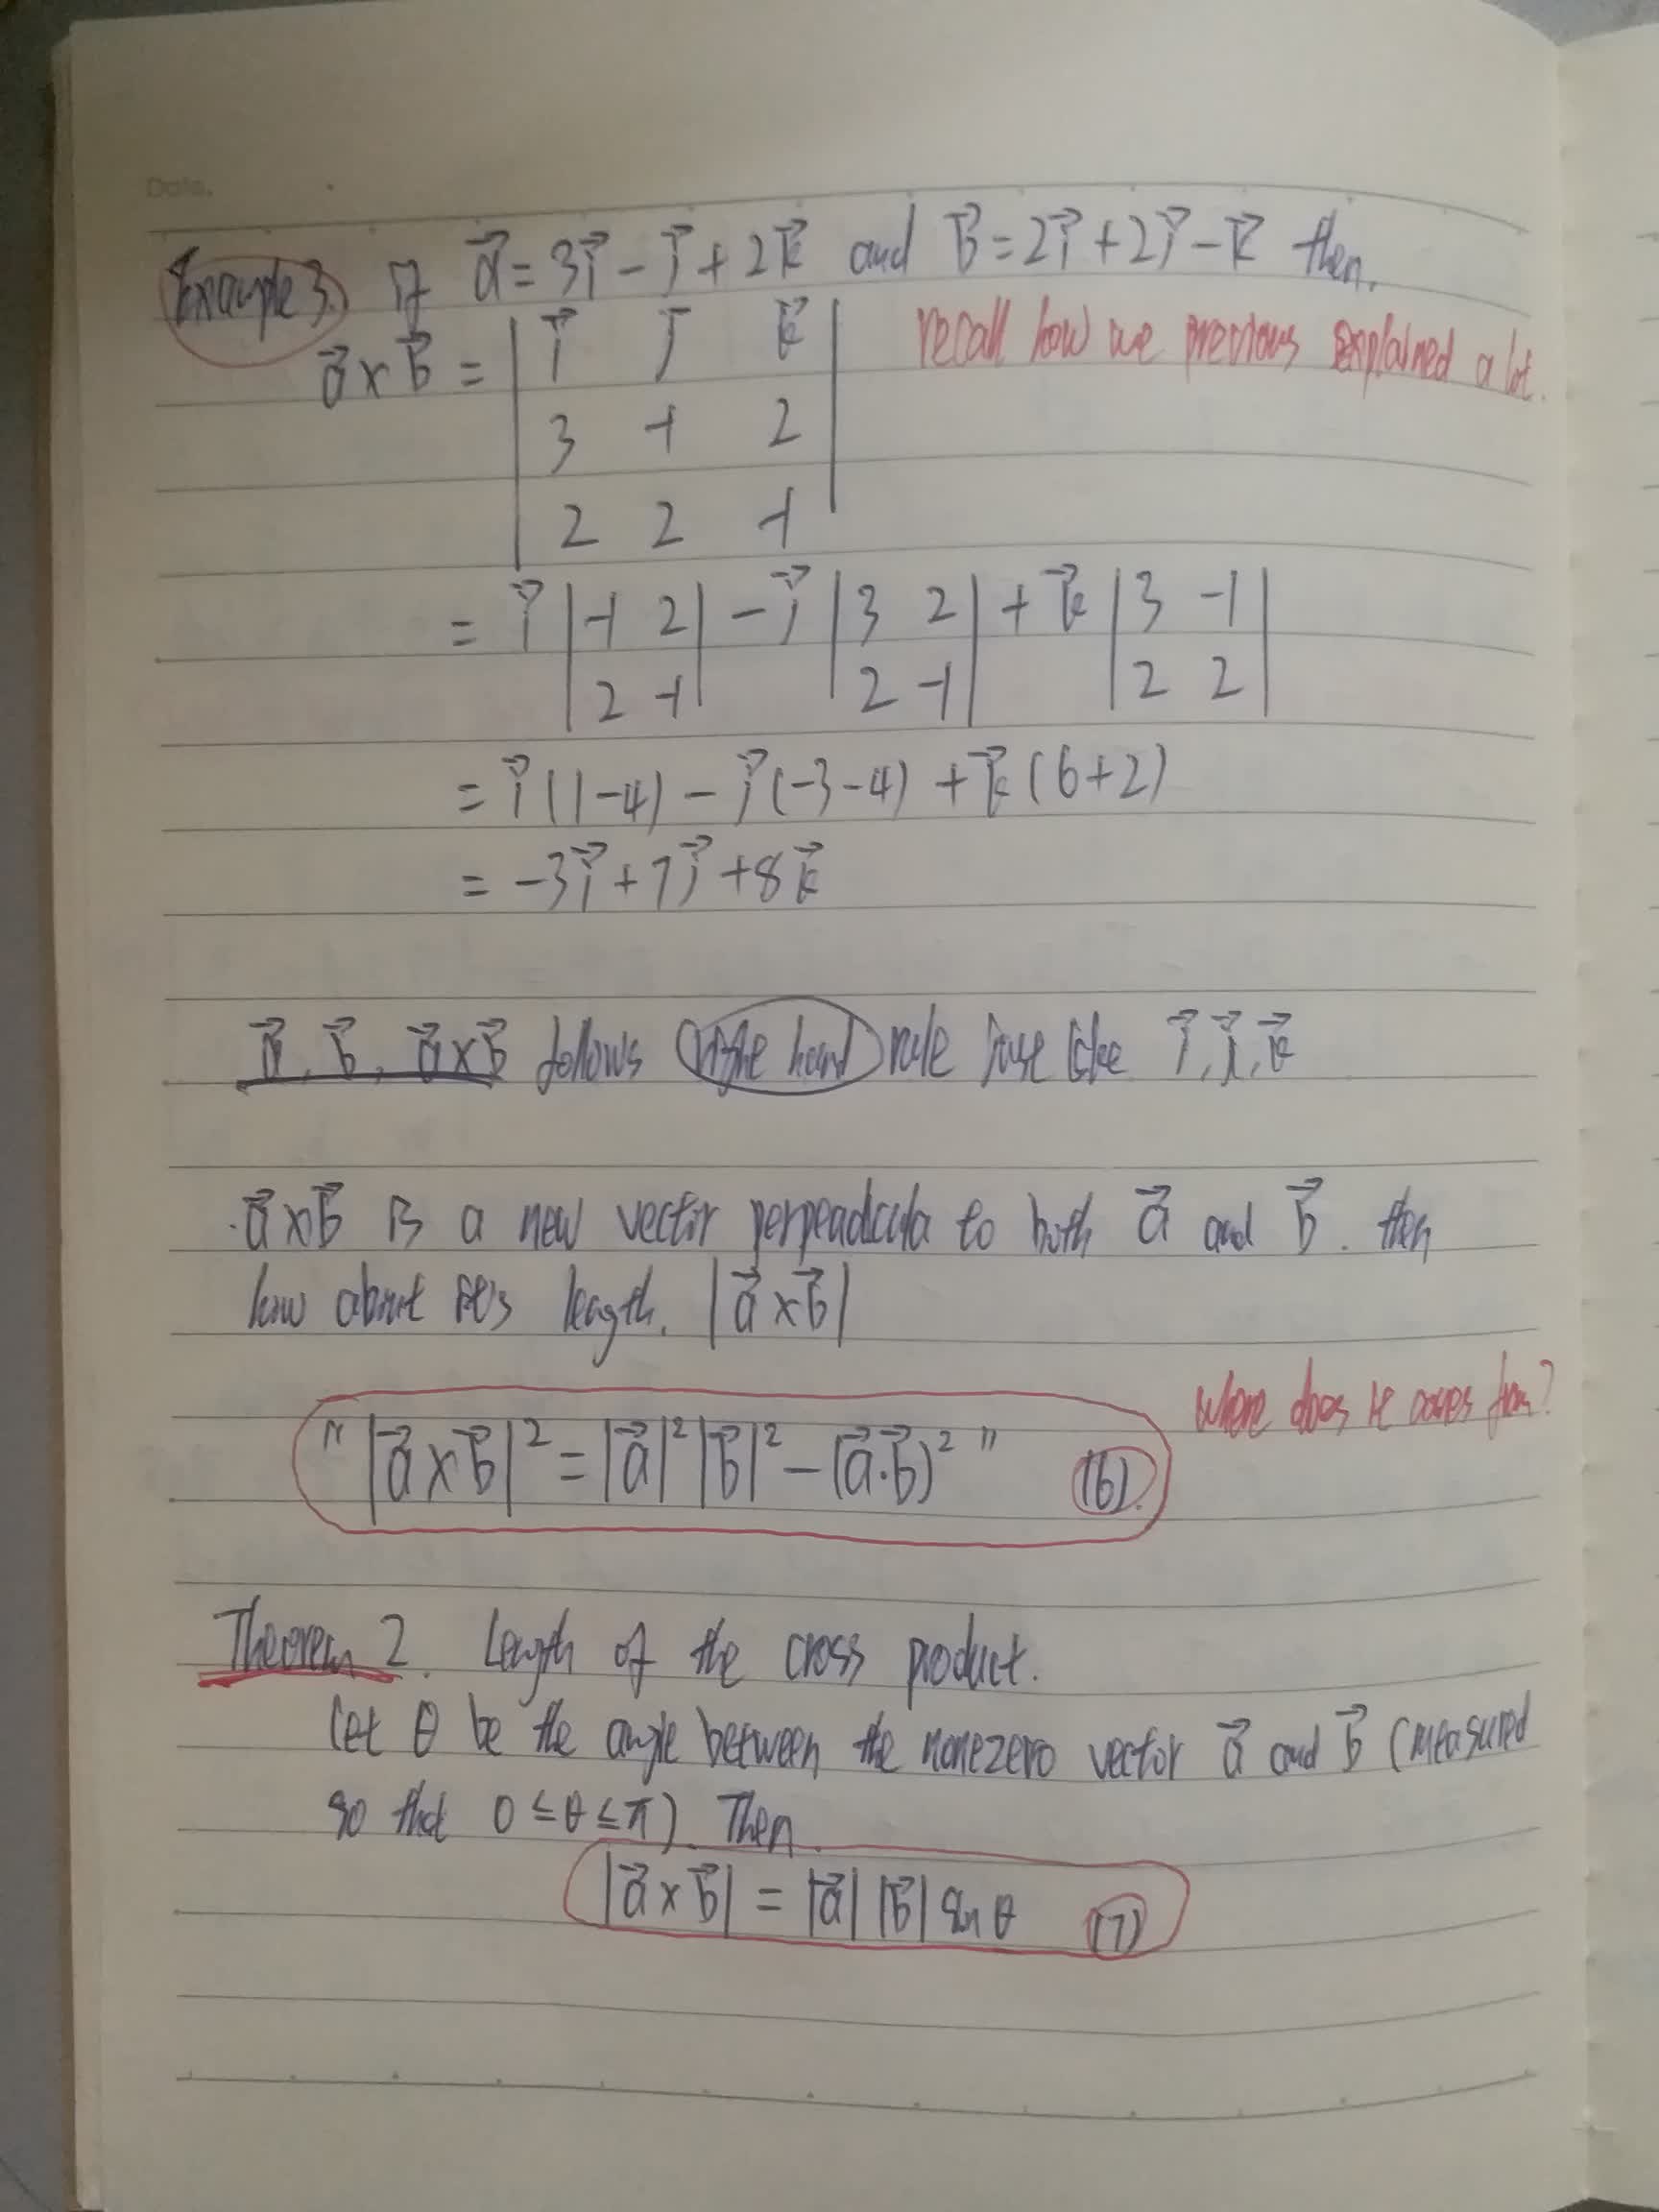 Date.
Example 3. If a⃗ = 3i⃗ - j⃗ + 2k⃗ and b⃗ = 2i⃗ + 2j⃗ - k⃗ then.
recall how we previous explained a lot.
a⃗ × b⃗ = | i⃗ j⃗ k⃗ |
| 3 -1 2 |
| 2 2 -1 |
= i⃗ |-1 2| - j⃗ |3 2| + k⃗ |3 -1|
|2 -1| |2 -1| |2 2|
= i⃗ (1-4) - j⃗ (-3-4) + k⃗ (6+2)
= -3i⃗ + 7j⃗ + 8k⃗
a⃗, b⃗, a⃗×b⃗ follows right hand rule just like i⃗, j⃗, k⃗
·a⃗×b⃗ is a new vector perpendicula to both a⃗ and b⃗. then
how about it's length. |a⃗×b⃗|
where does it comes from?
" |a⃗×b⃗|² = |a⃗|²|b⃗|² - (a⃗·b⃗)² " (6).
Theorem 2. Length of the cross product.
Let θ be the angle between the nonezero vector a⃗ and b⃗ (measured
so that 0 ≤ θ ≤ π). Then.
|a⃗×b⃗| = |a⃗| |b⃗| sin θ (7)